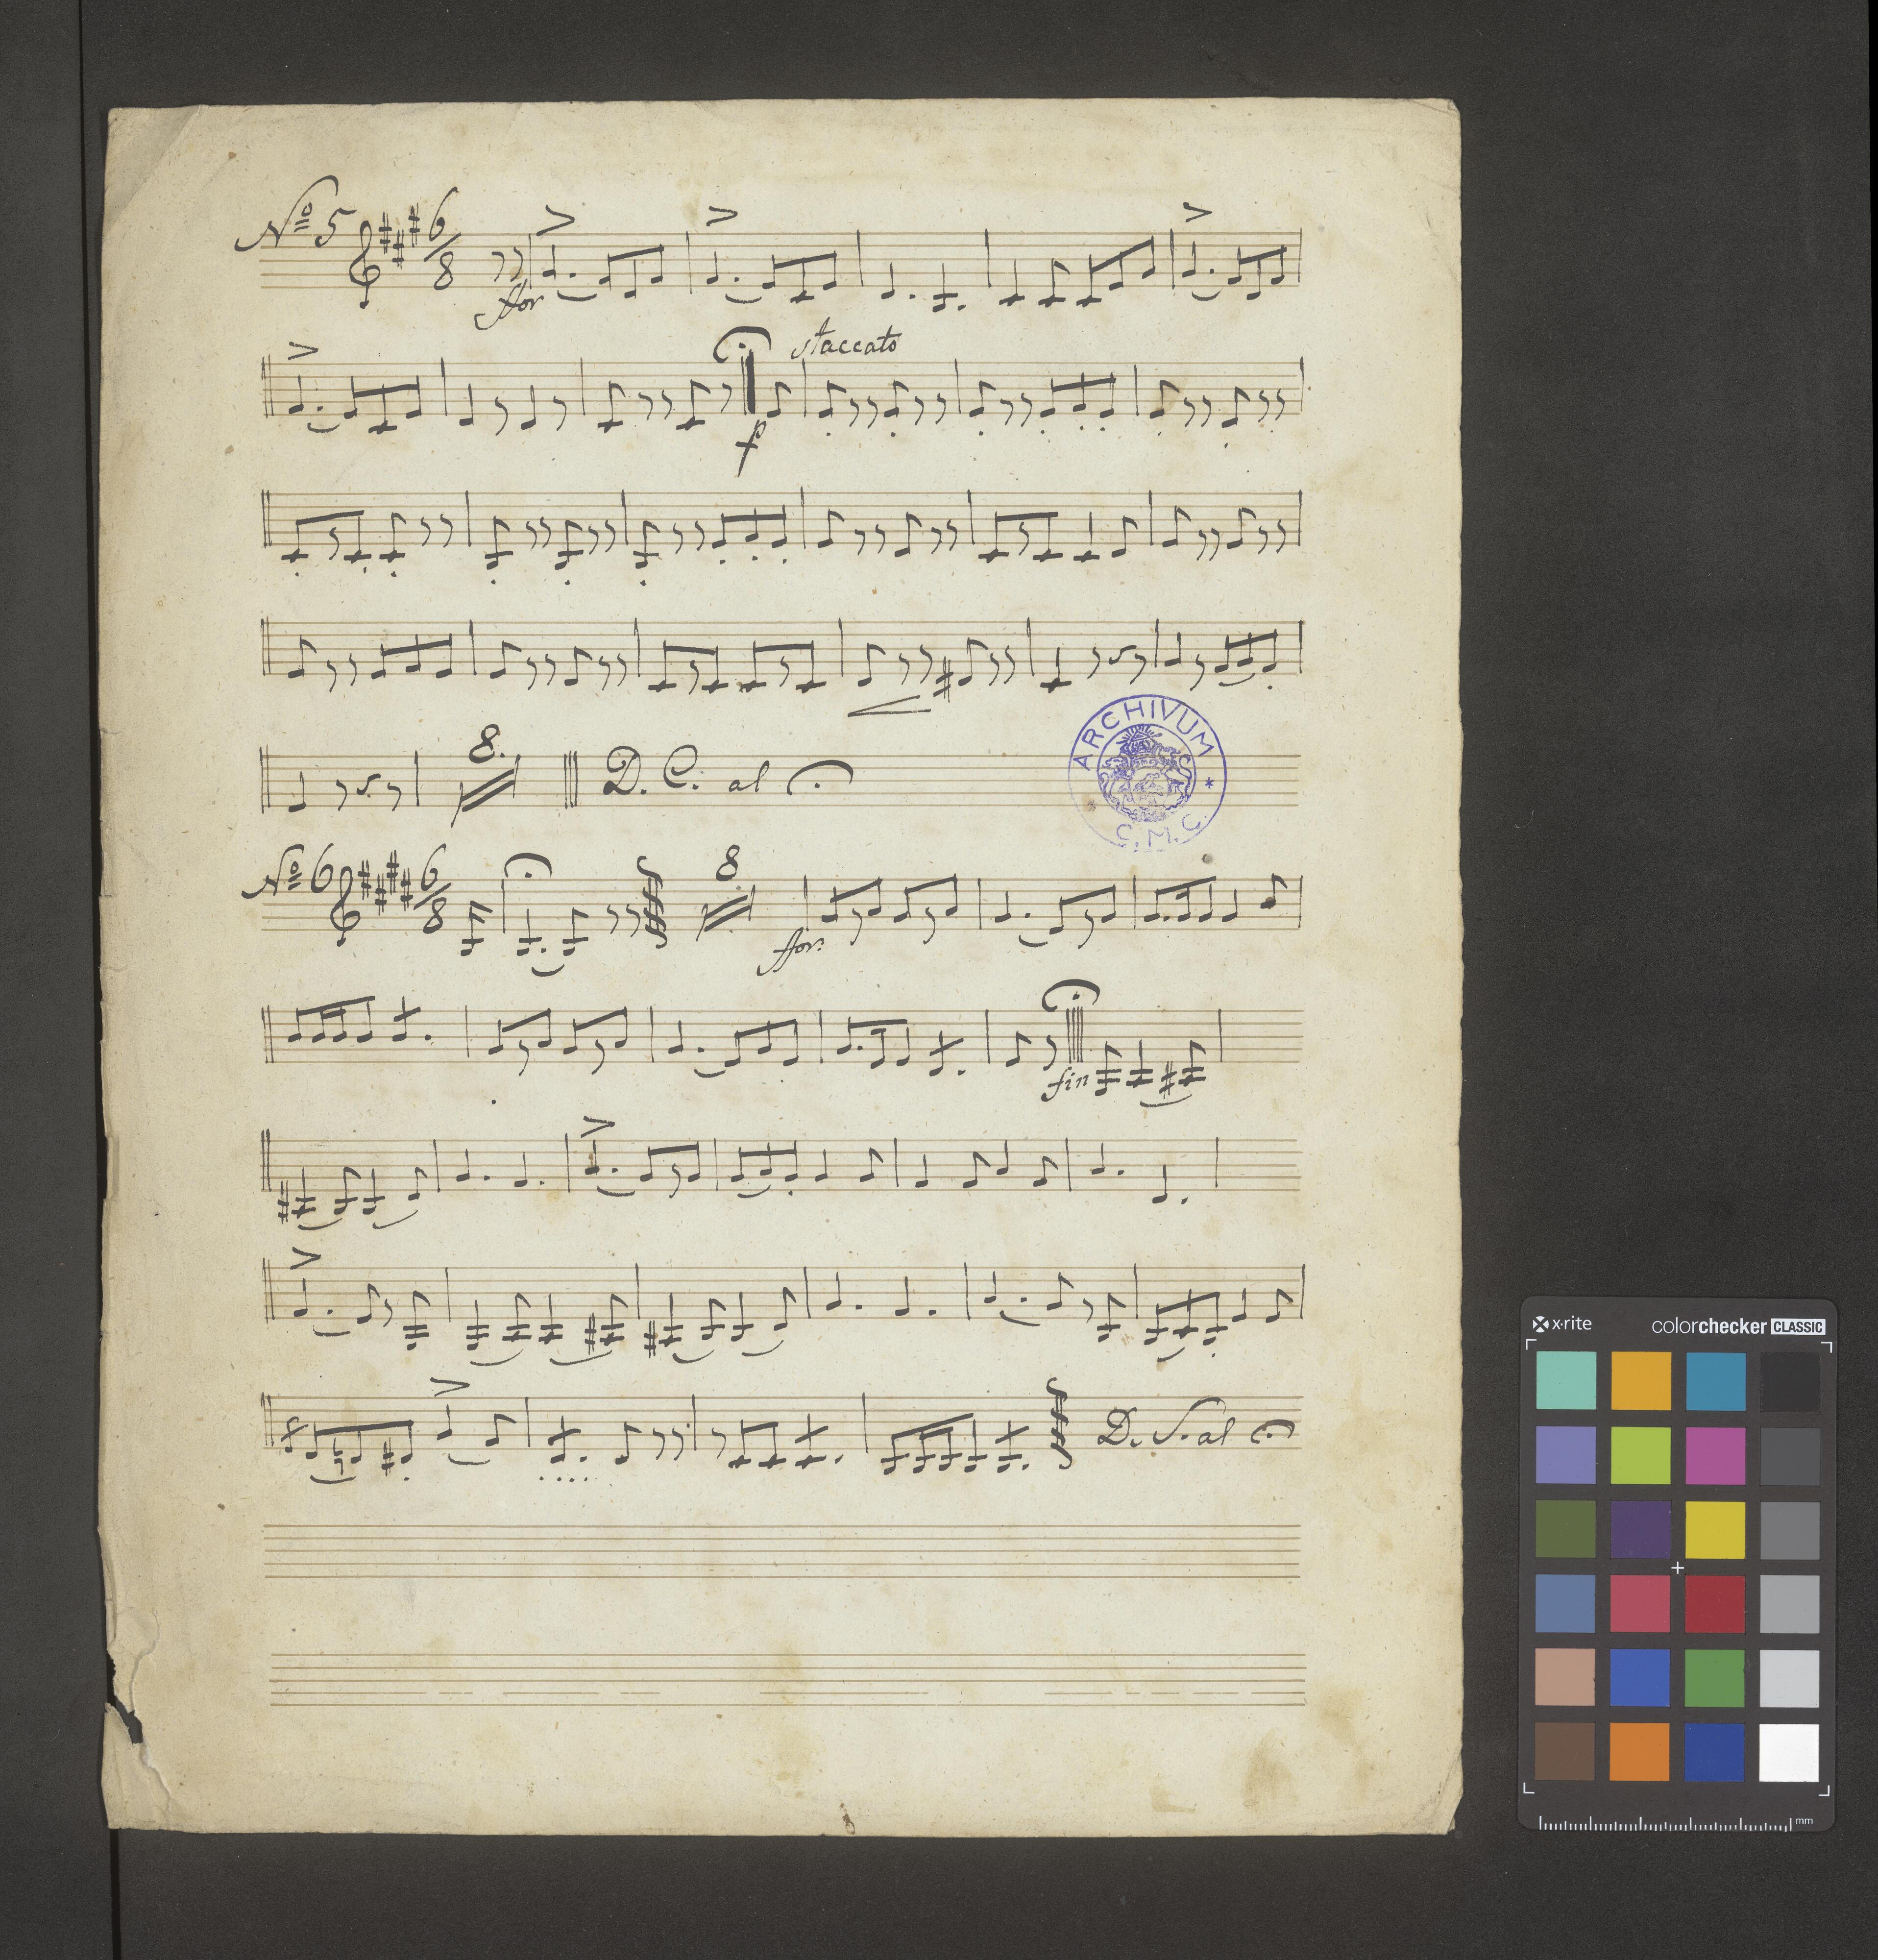 Nº 5 6/8
ffor
staccato
p
8.
D. C. al
ARCHIVUM
C. M. C.
Nº 6 6/8
8
ffor:
fin
D. S. al
x-rite colorchecker CLASSIC
mm